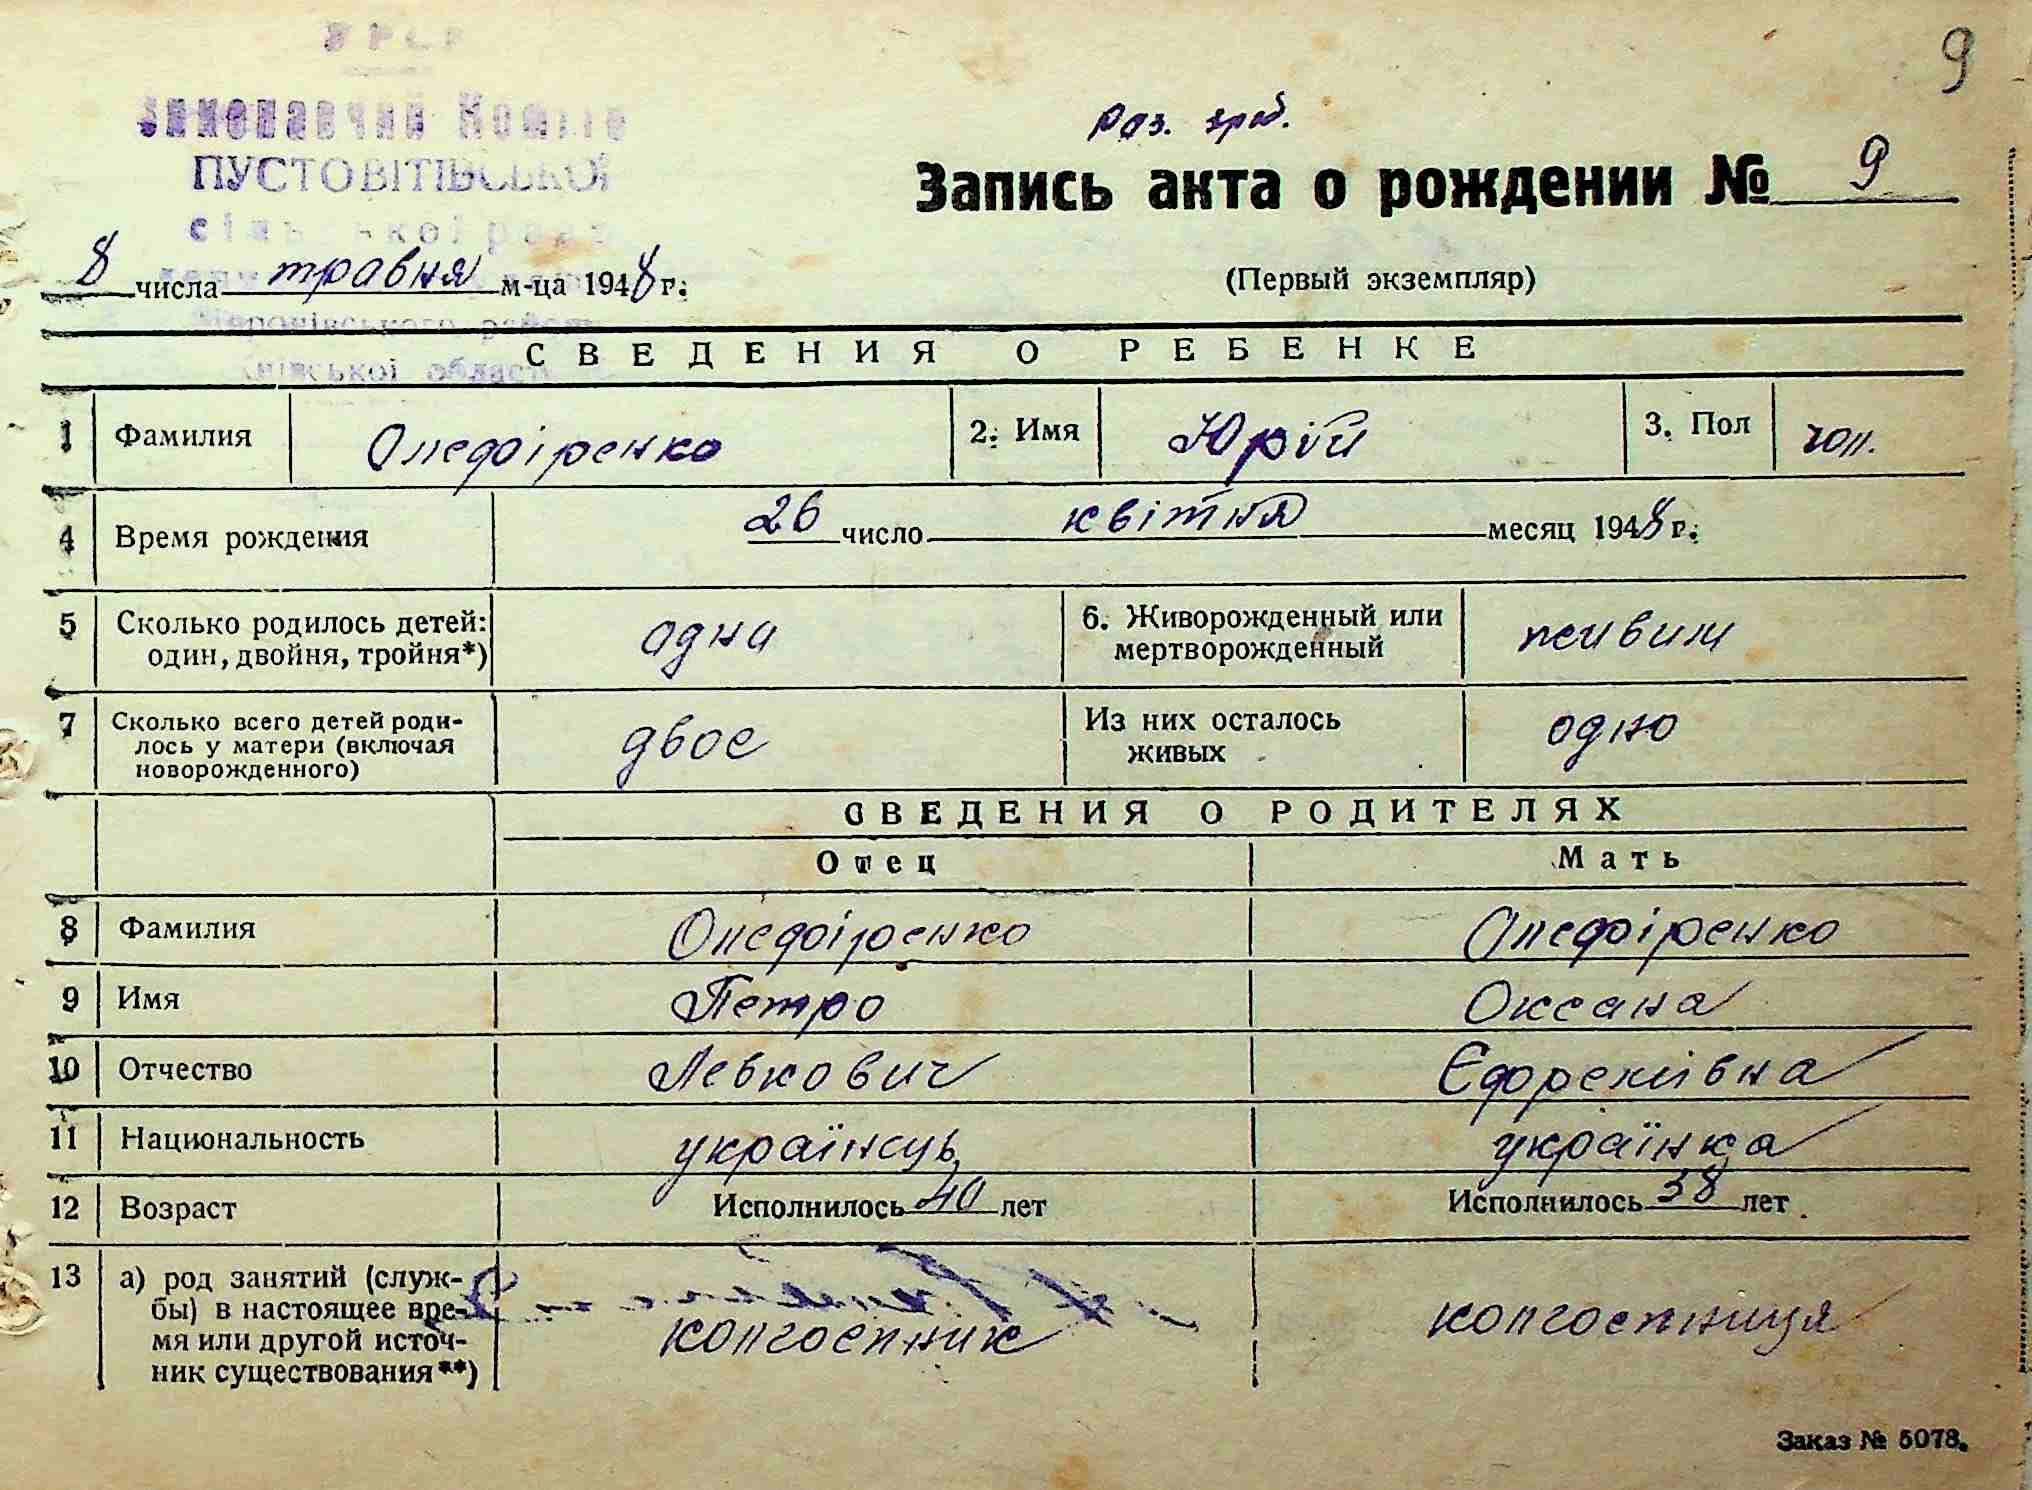 УРСР
Виконавчий Комітет
ПУСТОВІТІВСЬКОЇ
сільської ради
району
київської області
9
Запись акта о рождении № 9
8 числа травня м-ца 1948 г.
(Первый экземпляр)
СВЕДЕНИЯ О РЕБЕНКЕ
1 Фамилия Олефіренко 2. Имя Юрій 3. Пол чол.
4 Время рождения 26 число квітня месяц 1948 г.
5 Сколько родилось детей: один, двойня, тройня*) одна 6. Живорожденный или мертворожденный живим
7 Сколько всего детей родилось у матери (включая новорожденного) двоє Из них осталось живых одно
СВЕДЕНИЯ О РОДИТЕЛЯХ
Отец Мать
8 Фамилия Олефіренко Олефіренко
9 Имя Петро Оксана
10 Отчество Левкович Єфремівна
11 Национальность українець українка
12 Возраст Исполнилось 40 лет Исполнилось 38 лет
13 а) род занятий (служ-
бы) в настоящее вре-
мя или другой источ-
ник существования**) колгоспник колгоспниця
Заказ № 5078.